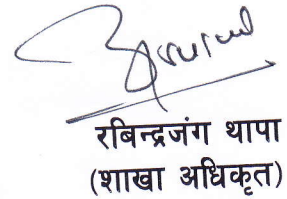 रबिन्द्रजंग थापा
(शाखा अधिकृत)